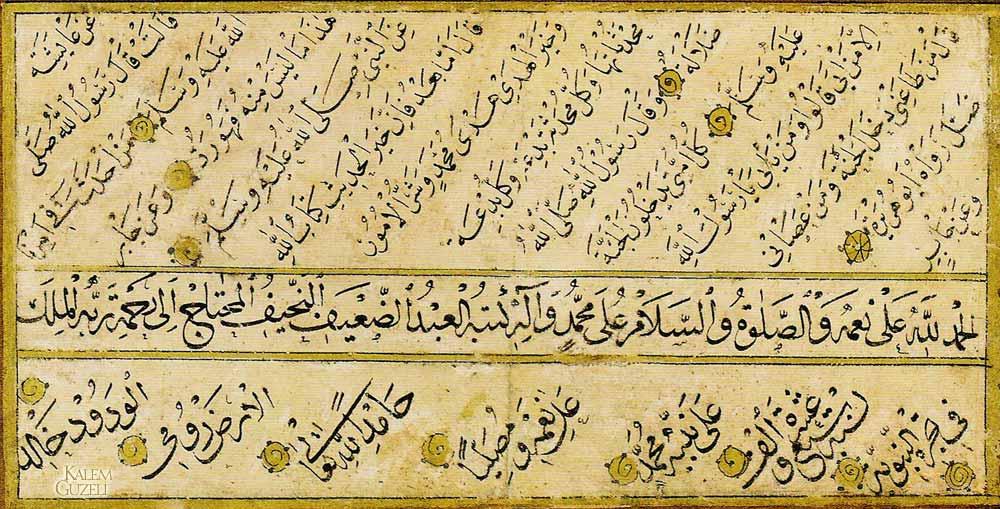 عن عايشة
قالت قال رسول الله صلى
الله عليه وسلم من احدث في امرنا
هذا ما ليس منه فهو رد وعن جابر
عن النبي صلى الله عليه وسلم
قال اما بعد فان خير الحديث كتاب الله
وخير الهدى هدى محمد وشر الامور
محدثاتها وكل محدثة بدعة وكل بدعة
ضلالة وقال رسول الله صلى الله
عليه وسلم كل امتي يدخلون الجنة
الا من ابى قالوا ومن يأبى يا رسول الله
قال من اطاعني دخل الجنة ومن عصاني
ضل رواه ابو هريرة
وعن جابر
الحمد لله على نعمه والصلوة والسلام على محمد وآله كتبه العبد الضعيف النحيف المحتاج الى رحمة ربه الملك
الودود خالد
الارضرومي
حامدا لله تعالى
على نعمه ومصليا
على نبيه محمد
تسع عشرة والف
في هجرة النبوية
KALEM
GÜZELİ